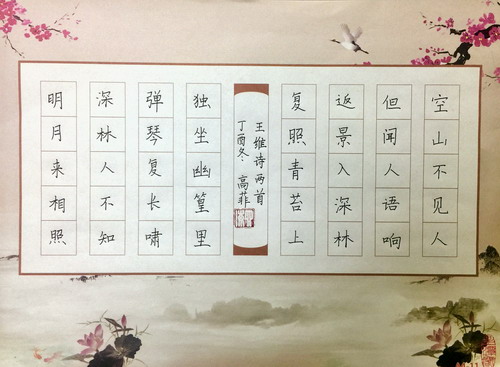 空山不见人
但闻人语响
返景入深林
复照青苔上
王维诗两首
丁酉冬 高菲
独坐幽篁里
弹琴复长啸
深林人不知
明月来相照